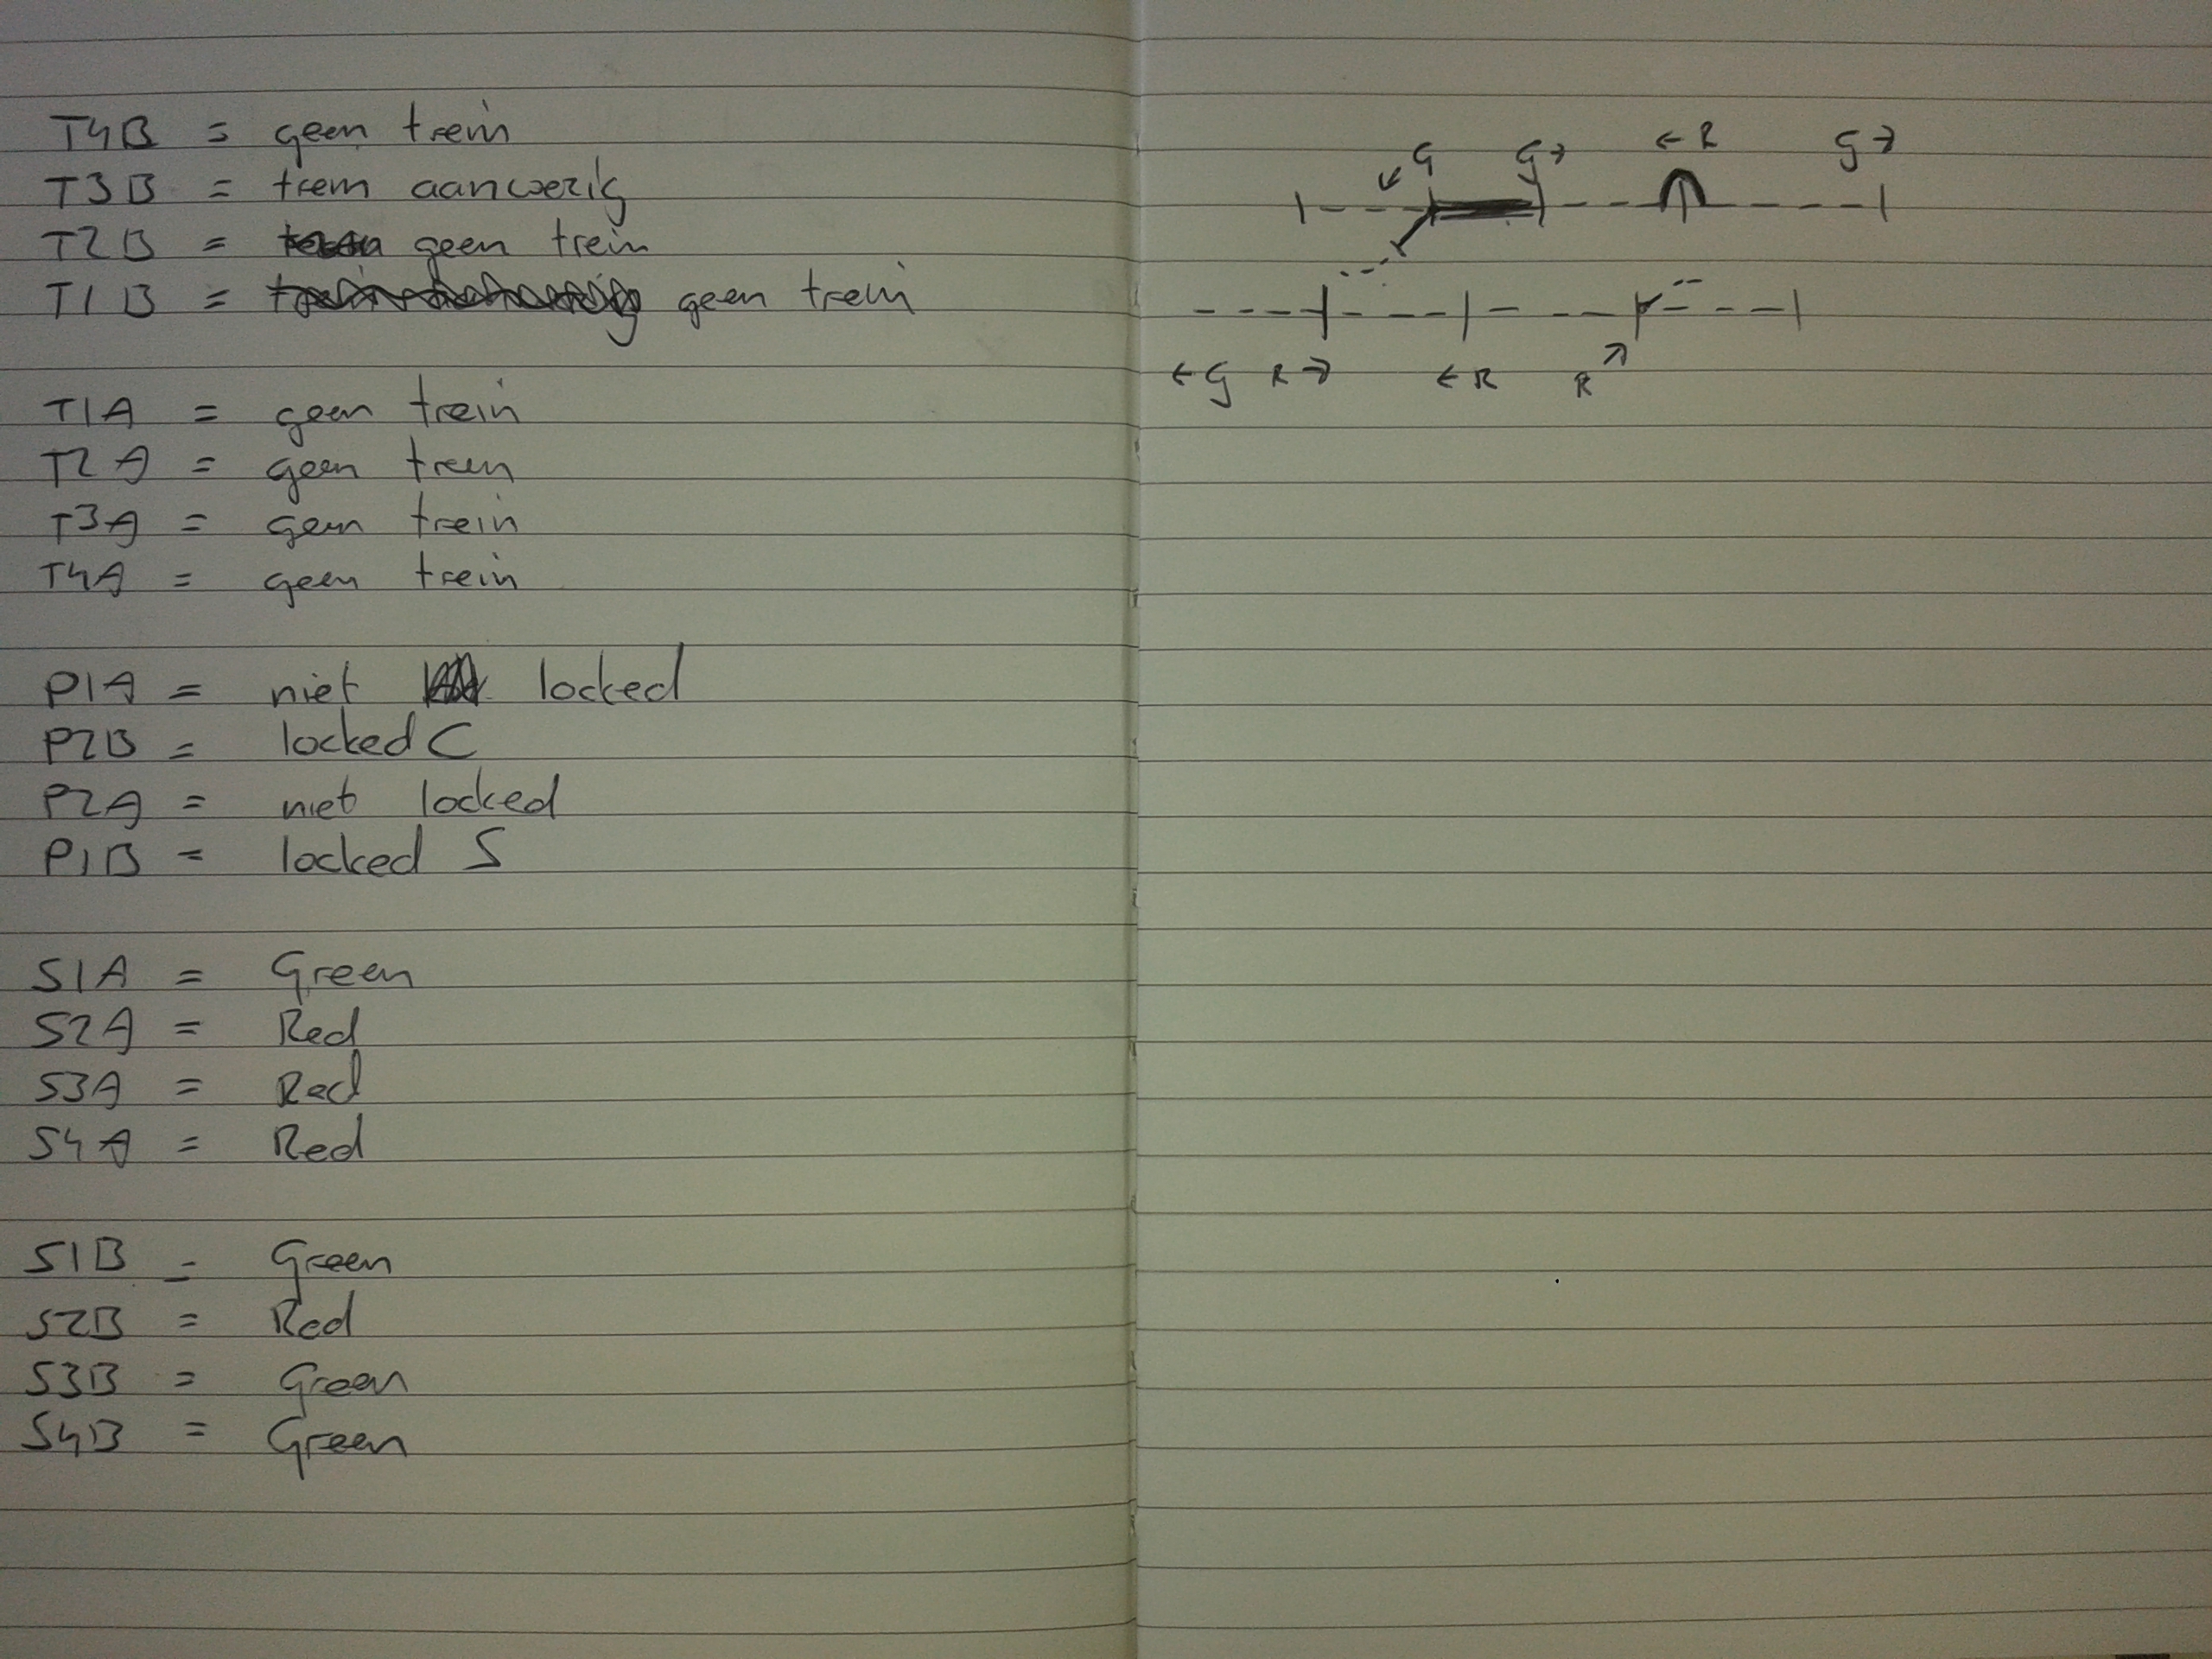 T4B = geen trein
T3B = trein aanwezig
T2B = geen trein
T1B = geen trein
T1A = geen trein
T2A = geen trein
T3A = geen trein
T4A = geen trein
P1A = niet locked
P2B = locked C
P2A = niet locked
P1B = locked S
S1A = Green
S2A = Red
S3A = Red
S4A = Red
S1B = Green
S2B = Red
S3B = Green
S4B = Green
↙ G G → ← R G →
← G R → ← R R ↗